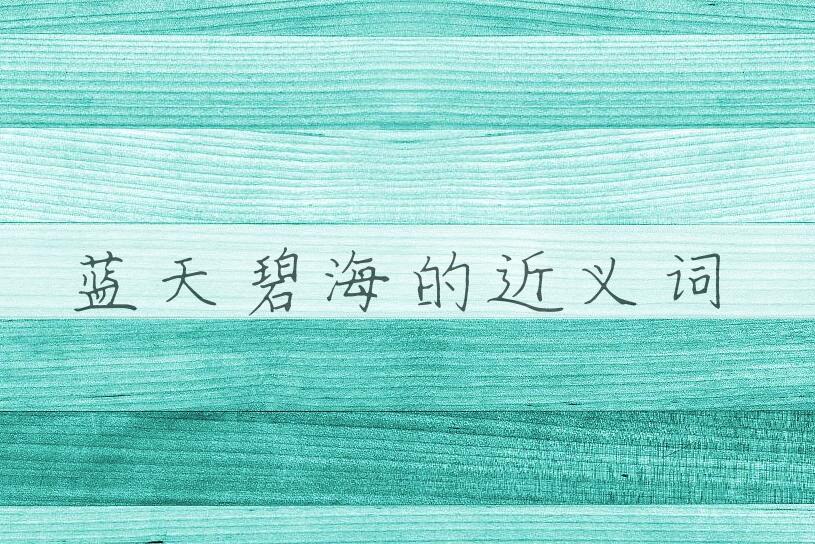 蓝天碧海的近义词